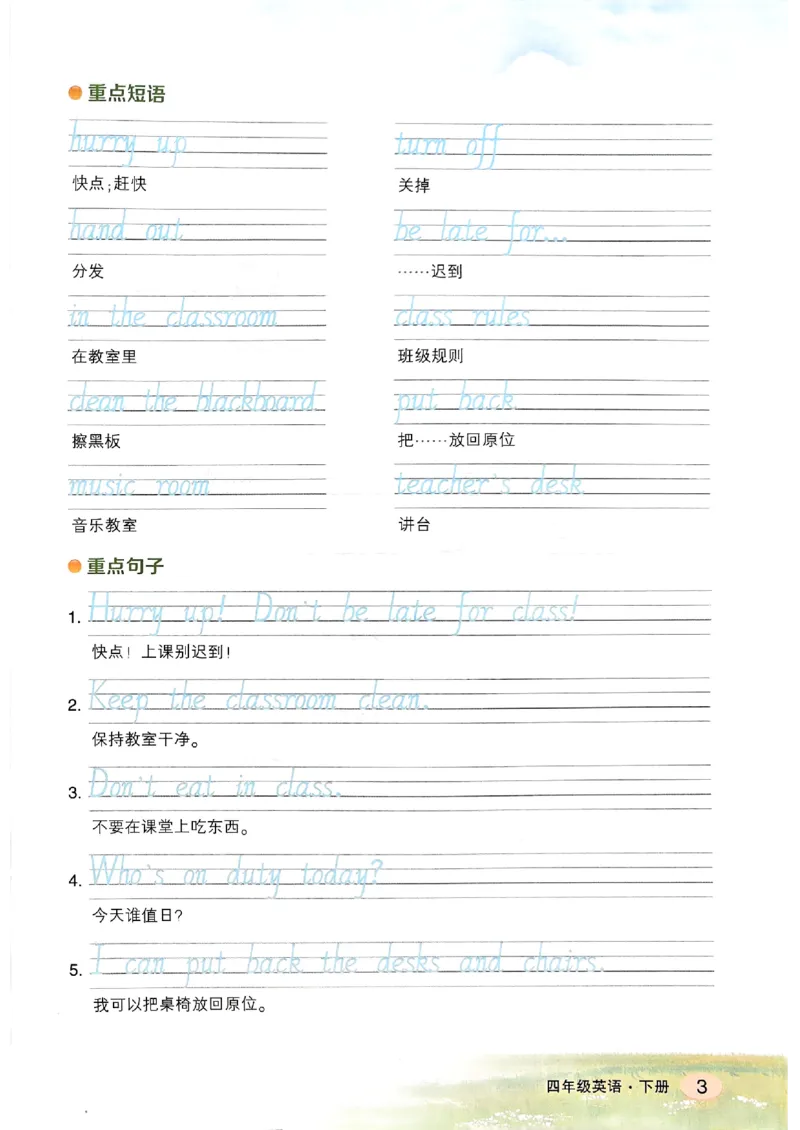 重点短语
hurry up
turn off
快点;赶快
关掉
hand out
be late for...
分发
……迟到
in the classroom
class rules
在教室里
班级规则
clean the blackboard
put back
擦黑板
把……放回原位
music room
teacher's desk
音乐教室
讲台
重点句子
1. Hurry up! Don't be late for class!
快点！上课别迟到！
2. Keep the classroom clean.
保持教室干净。
3. Don't eat in class.
不要在课堂上吃东西。
4. Who's on duty today?
今天谁值日?
5. I can put back the desks and chairs.
我可以把桌椅放回原位。
四年级英语·下册 3